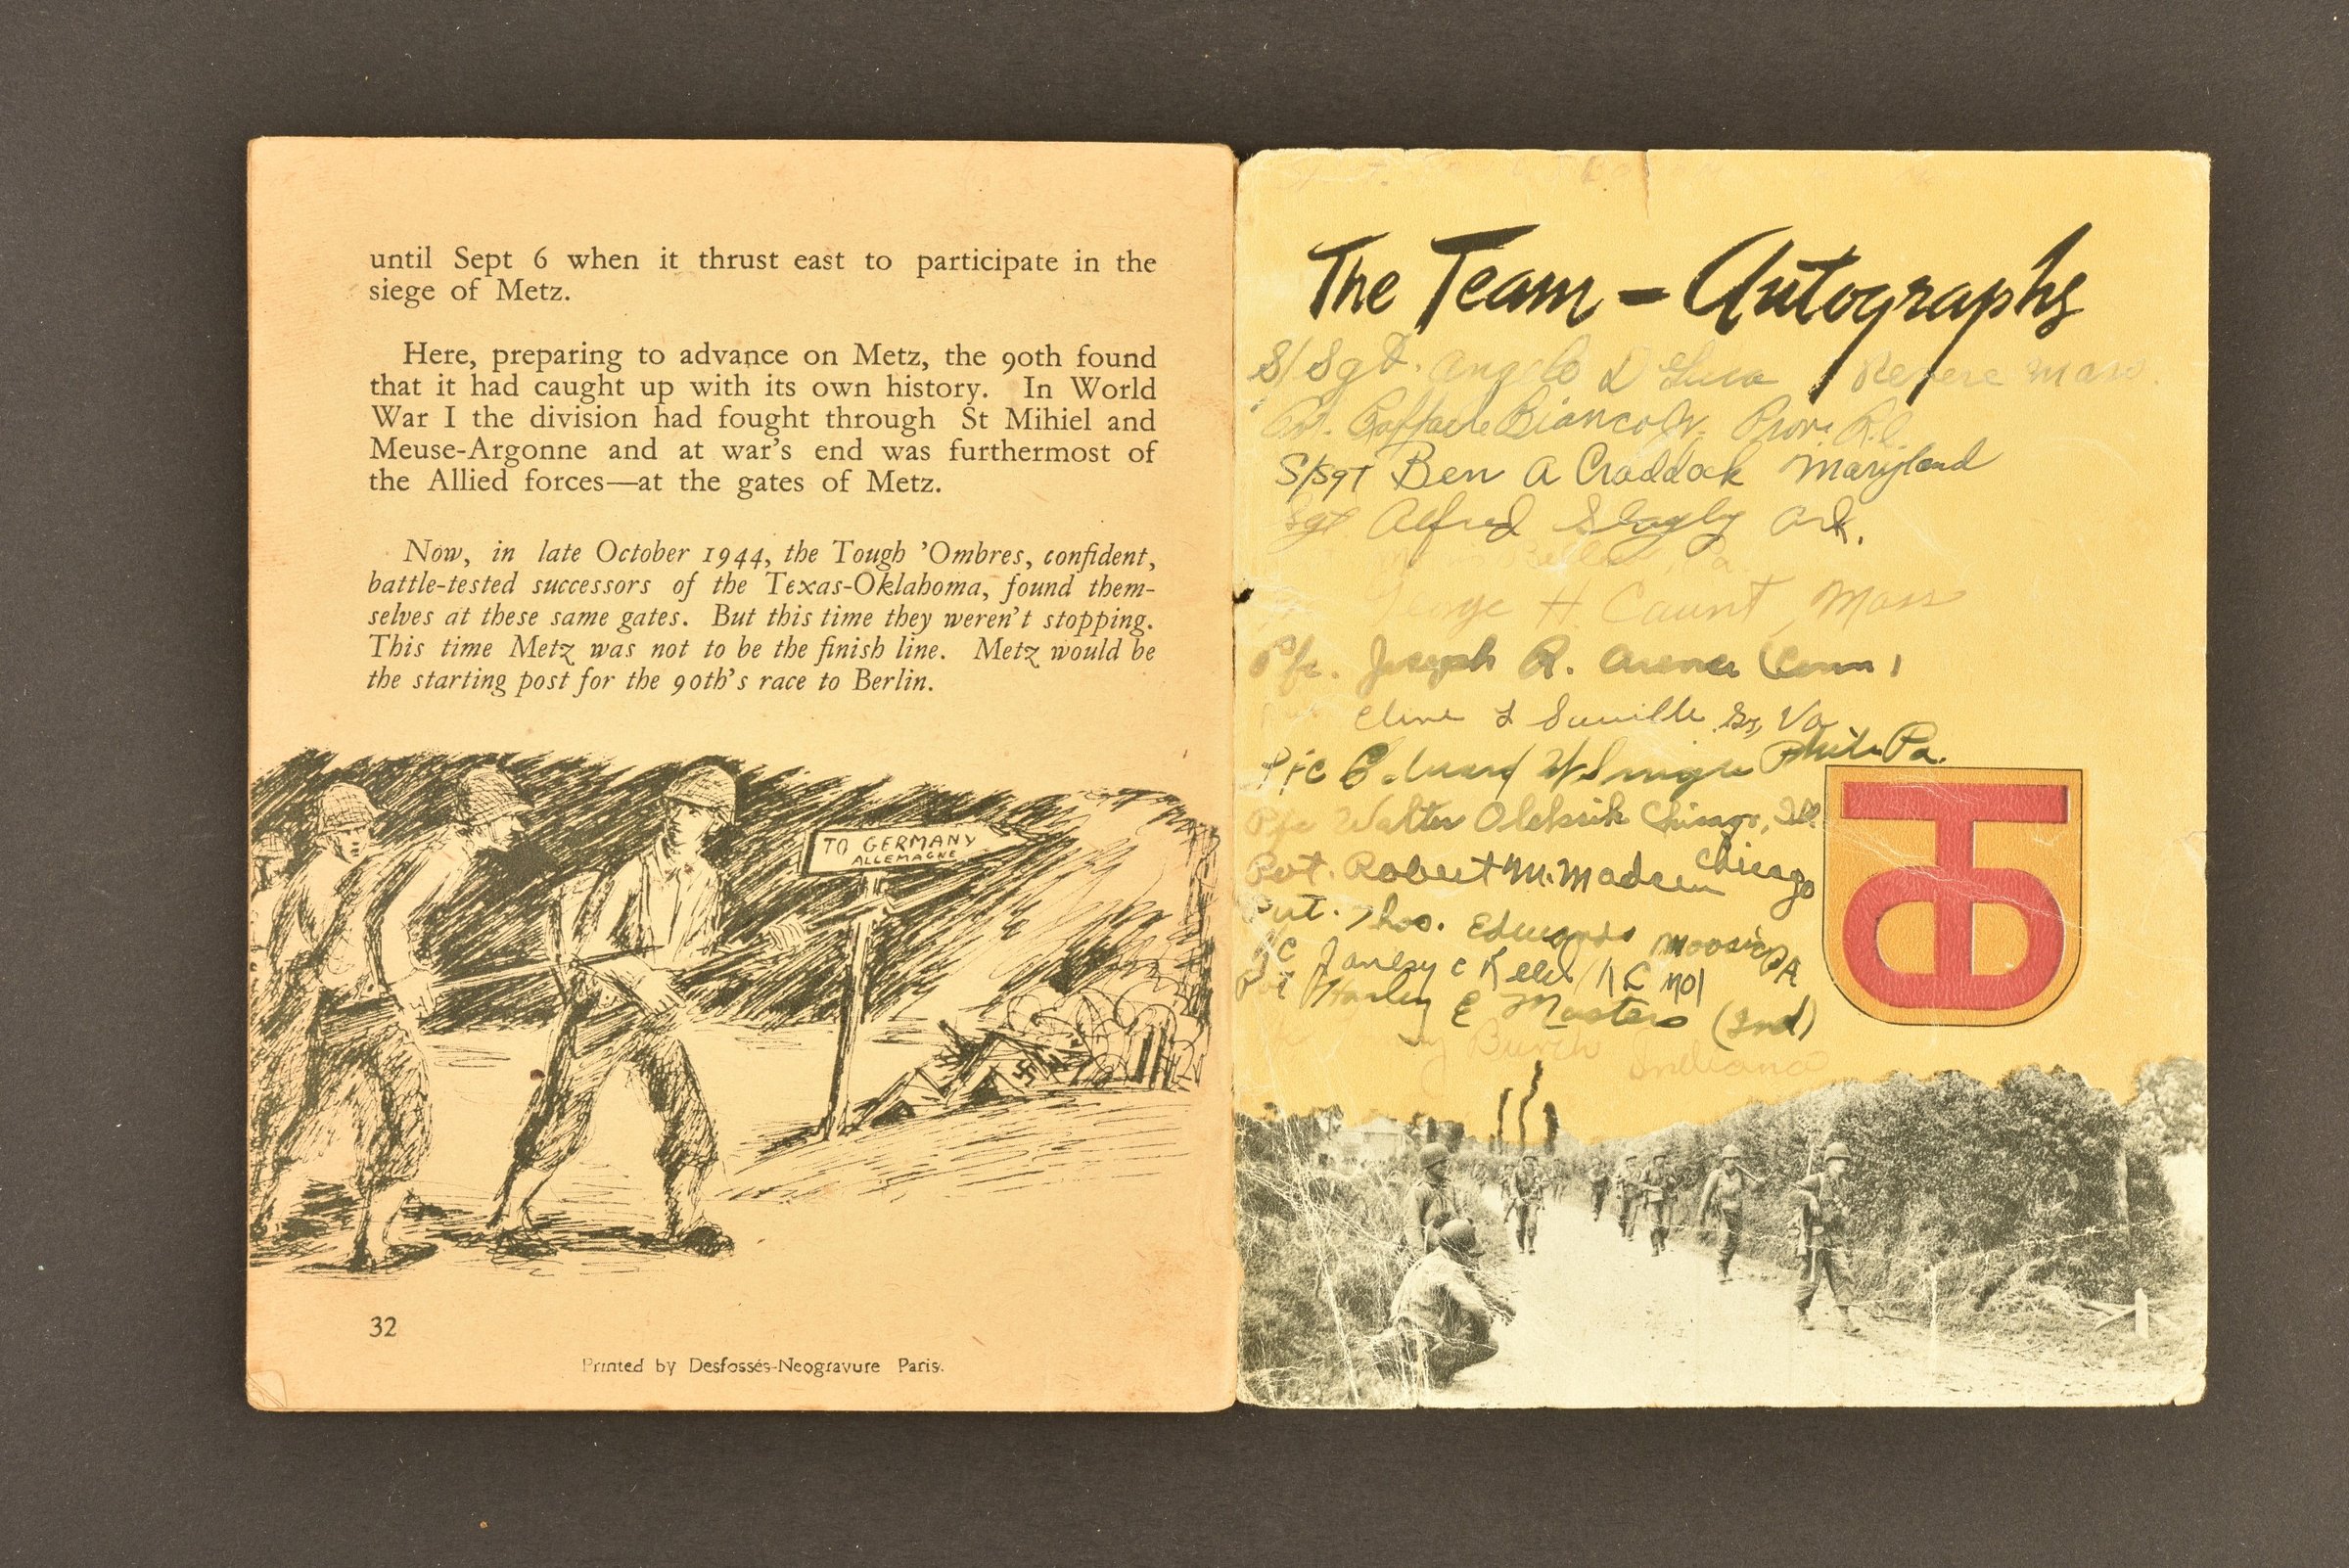 until Sept 6 when it thrust east to participate in the
siege of Metz.
Here, preparing to advance on Metz, the 90th found
that it had caught up with its own history. In World
War I the division had fought through St Mihiel and
Meuse-Argonne and at war's end was furthermost of
the Allied forces—at the gates of Metz.
Now, in late October 1944, the Tough 'Ombres, confident,
battle-tested successors of the Texas-Oklahoma, found them-
selves at these same gates. But this time they weren't stopping.
This time Metz was not to be the finish line. Metz would be
the starting post for the 90th's race to Berlin.
TO GERMANY
ALLEMAGNE
32
Printed by Desfossés-Neogravure Paris.
The Team - Autographs
S/Sgt. Angelo D'Luca Revere Mass.
Raffaele Prov. R.I.
S/Sgt Ben A Craddock Maryland
Sgt Alfred Ark.
Pa.
George H. Caunt, Mass
Pfc. Joseph R. Conn
Cline L Va
Pfc Edward W Phila Pa.
Pfc Walter Oleksik Chicago, Ill
Pvt. Robert M. Madsen Chicago
Pvt. Thos. Edwards Moosic PA
C K.C. MO
Pvt Harley E Masters (Ind)
Burch Indiana
TO